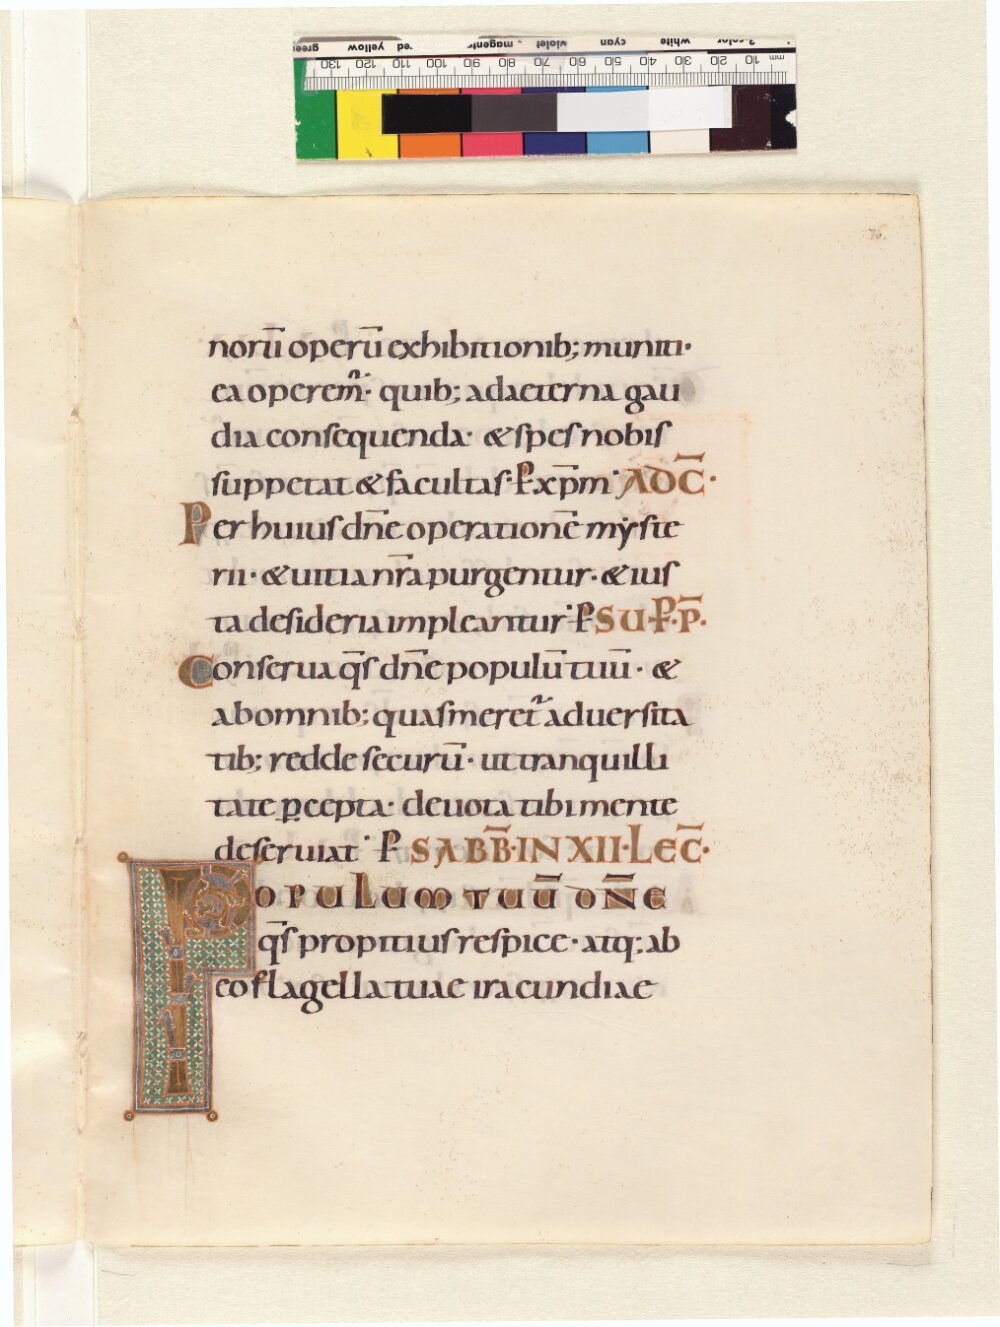 76.
norū operū exhibitionib; muniti·
ea operem̄· quib; ad aeterna gau
dia consequenda· & spes nobis
suppetat & facultas· ꝑ xp̄m AD C̄·
Per huius dn̄e operationē myste
rii· & uitia nr̄a purgentur· & ius
ta desideria impleantur· ꝑ SUꝐ·P̄·
Conserua q̄s dn̄e populū tuū· &
ab omnib; quas meret aduersita
tib; redde securū· ut tranquilli
tate ꝑcepta· deuota tibi mente
deseruiat· ꝑ SABB̄·IN XII·LEC̄·
POPULUM TUŪ DN̄E
q̄s propitius respice· atq; ab
eo flagella tuae iracundiae